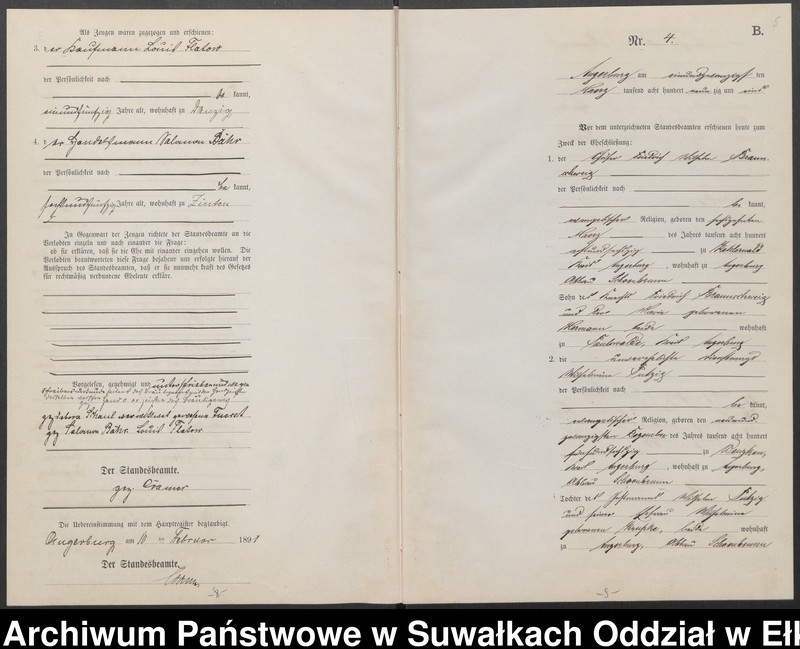 Als Zeugen waren zugezogen und erschienen:
3. der Kaufmann Louis Flatow
der Persönlichkeit nach
be kannt,
einundfünfzig Jahre alt, wohnhaft zu Danzig
4. der Handelsmann Salomon Bähr
der Persönlichkeit nach
be kannt,
Jahre alt, wohnhaft zu Zinten
In Gegenwart der Zeugen richtete der Standesbeamte an die
Verlobten einzeln und nach einander die Frage:
ob sie erklären, daß sie die Ehe mit einander eingehen wollen. Die
Verlobten beantworteten diese Frage bejahend und erfolgte hierauf der
Ausspruch des Standesbeamten, daß er sie nunmehr kraft des Gesetzes
für rechtmäßig verbundene Eheleute erkläre.
Vorgelesen, genehmigt und unterschrieben und wegen
gez.
geborene
gez. Salomon Bähr. Louis Flatow
Der Standesbeamte.
gez. Cramer
Die Uebereinstimmung mit dem Hauptregister beglaubigt.
Angerburg am 11 ten Februar 1891
Der Standesbeamte.
-8-
B.
5
Nr. 4.
Angerburg am einundzwanzigsten
März tausend acht hundert neun zig und eins
Vor dem unterzeichneten Standesbeamten erschienen heute zum
Zweck der Eheschließung:
1. der Friedrich Wilhelm Braun-
schweig
der Persönlichkeit nach
be kannt,
evangelischer Religion, geboren den
März des Jahres tausend acht hundert
achtundsechzig zu
Kreis Angerburg, wohnhaft zu Angerburg
Abbau Schoenbrunn
Sohn des Knechts Friedrich Braunschweig
und der Marie geborenen
Hermann beide wohnhaft
zu Paulswalde, Kreis Angerburg
2. die unverehelichte Dienstmagd
Wilhelmine
der Persönlichkeit nach
be kannt,
evangelischer Religion, geboren den neunund-
zwanzigsten Dezember des Jahres tausend acht hundert
fünfundsechzig zu
Kreis Angerburg, wohnhaft zu Angerburg,
Abbau Schoenbrunn
Tochter des Wilhelm
und seiner Ehefrau Wilhelmine
geborenen beide wohnhaft
zu Angerburg, Abbau Schoenbrunn
-9-
Archiwum Państwowe w Suwałkach Oddział w Ełk